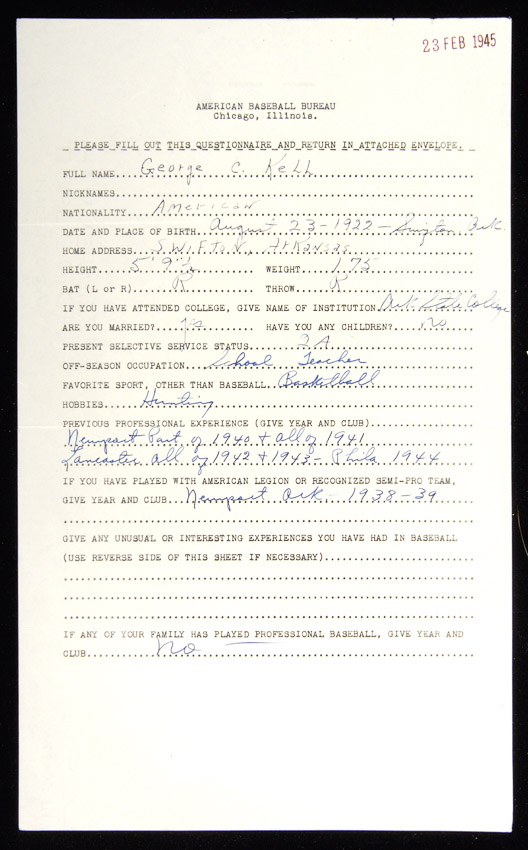 23 FEB 1945
AMERICAN BASEBALL BUREAU
Chicago, Illinois.
PLEASE FILL OUT THIS QUESTIONNAIRE AND RETURN IN ATTACHED ENVELOPE.
FULL NAME....George C. Kell
NICKNAMES....
NATIONALITY....American
DATE AND PLACE OF BIRTH....August 23-1922 - Ark.
HOME ADDRESS....Swifton, Arkansas
HEIGHT....5'9"½ WEIGHT....175
BAT (L or R)....R THROW....R
IF YOU HAVE ATTENDED COLLEGE, GIVE NAME OF INSTITUTION.Ark State College
ARE YOU MARRIED?....yes HAVE YOU ANY CHILDREN?....no
PRESENT SELECTIVE SERVICE STATUS....2A
OFF-SEASON OCCUPATION....School Teacher
FAVORITE SPORT, OTHER THAN BASEBALL..Basketball
HOBBIES....Hunting
PREVIOUS PROFESSIONAL EXPERIENCE (GIVE YEAR AND CLUB)....
Newport Part of 1940 + all of 1941
Lancaster all of 1942 + 1943 - Phila 1944
IF YOU HAVE PLAYED WITH AMERICAN LEGION OR RECOGNIZED SEMI-PRO TEAM,
GIVE YEAR AND CLUB...Newport Ark - 1938-39
GIVE ANY UNUSUAL OR INTERESTING EXPERIENCES YOU HAVE HAD IN BASEBALL
(USE REVERSE SIDE OF THIS SHEET IF NECESSARY)....
IF ANY OF YOUR FAMILY HAS PLAYED PROFESSIONAL BASEBALL, GIVE YEAR AND
CLUB....No